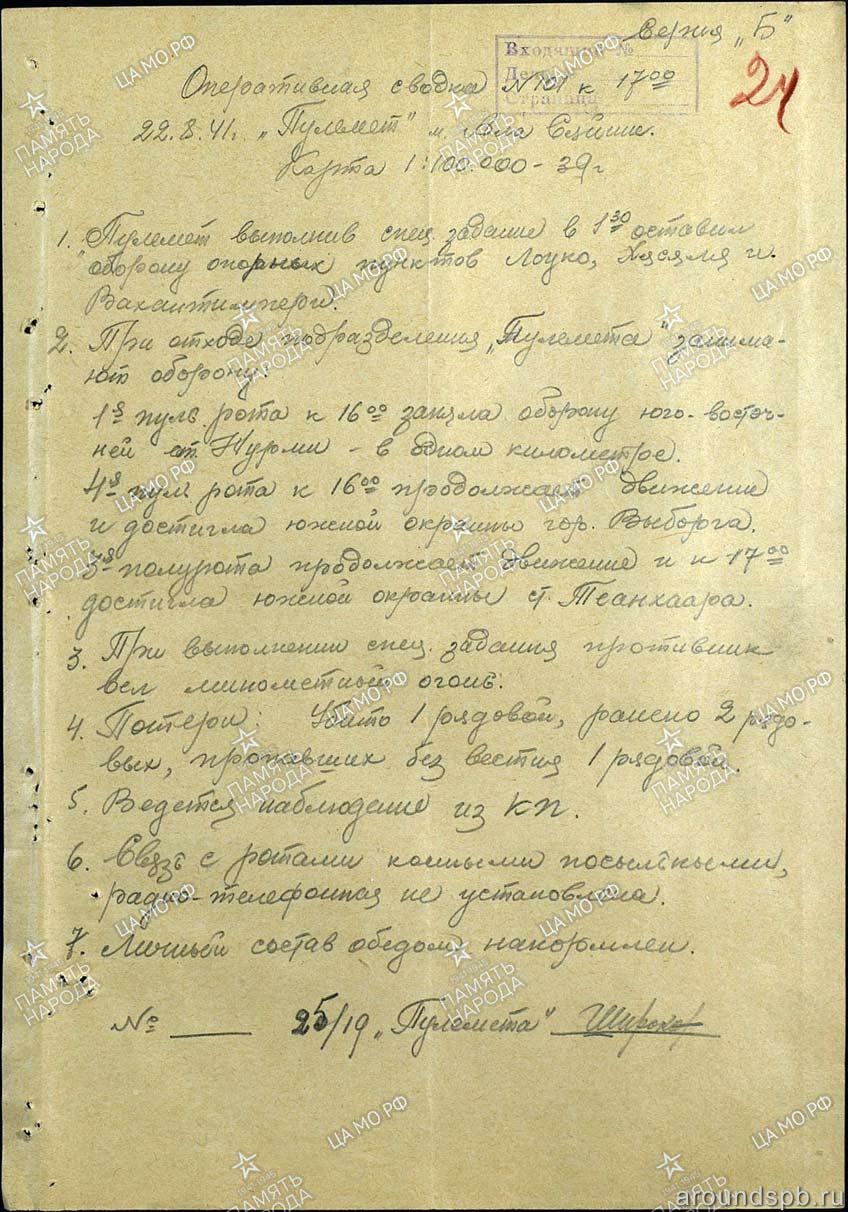 Серия „Б"
Входящий №
24
Оперативная сводка N 101 к 17⁰⁰
22.8.41. „Пулемет" м. Ала Сяйние.
Карта 1:100.000 - 39 г
1. Пулемет выполнив спец. задание в 1³⁰ оставил
оборону опорных пунктов Лоуко, Хясяля и
2. При отходе подразделения „Пулемета" занима-
ют оборону:
1я пул. рота к 16⁰⁰ заняла оборону юго-восточ-
ней ст. Нурми - в одном километре.
4я пул. рота к 16⁰⁰ продолжает движение
и достигла южной окраины гор. Выборга.
3я полурота продолжает движение и к 17⁰⁰
достигла южной окраины ст. Теанхаара.
3. При выполнении спец. задания противник
вел минометный огонь.
4. Потери: Убито 1 рядовой, ранено 2 рядо-
вых, пропавших без вестия 1 рядовой.
5. Ведется наблюдение из КП.
6. Связь с ротами конными посыльными,
радио-телефонная не установлена.
7. Личный состав обедом накормлен.
№ ____ 25/19 „Пулемета" Широков
ЦАМО.РФ
ПАМЯТЬ НАРОДА
aroundspb.ru